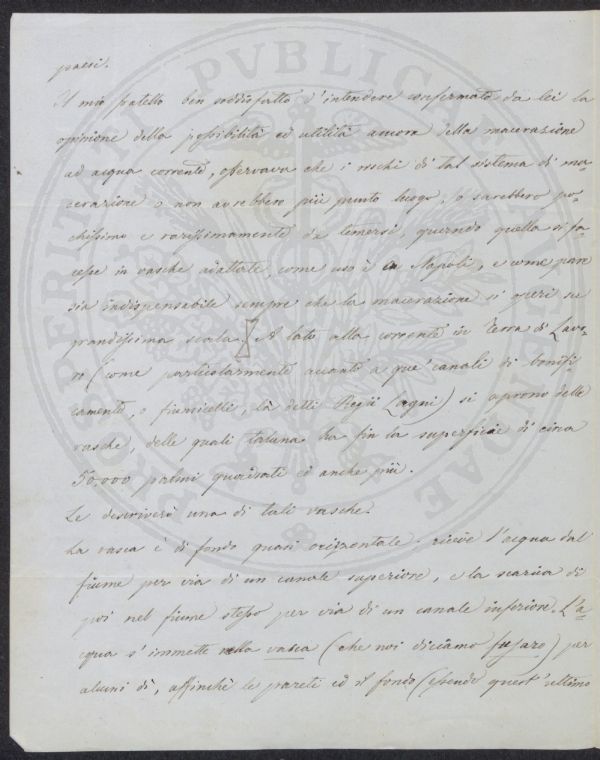 paesi.
Il mio fratello ben soddisfatto d'intendere confermata da lei la
opinione della possibilità ed utilità ancora della macerazione
ad acqua corrente, osservava che i rischi di tal sistema di ma=
cerazione o non avrebbero più punto luogo, o sarebbero po=
chissimo e rarissimamente da temersi, quando quella si fa=
cesse in vasche adattate, come uso è in Napoli, e come pare
sia indispensabile sempre che la macerazione si operi su
grandissima scala. A lato alla corrente in Terra di Lavo=
ro (come particolarmente accanto a que' canali di bonifi=
camento, o fiumicelli, là detti Regii Lagni) si aprono delle
vasche, delle quali taluna ha fin la superficie di circa
50,000 palmi quadrati ed anche più.
Le descriverò una di tali vasche.
La vasca è di fondo quasi orizzontale. riceve l'acqua dal
fiume per via di un canale superiore, e la scarica di
poi nel fiume stesso per via di un canale inferiore. L'a=
cqua s'immette nella vasca (che noi diciamo fusaro) per
alcuni dì, affinchè le pareti ed il fondo (essendo quest'ultimo
PVBLICAE
PROSPERITATI
AVGENDAE